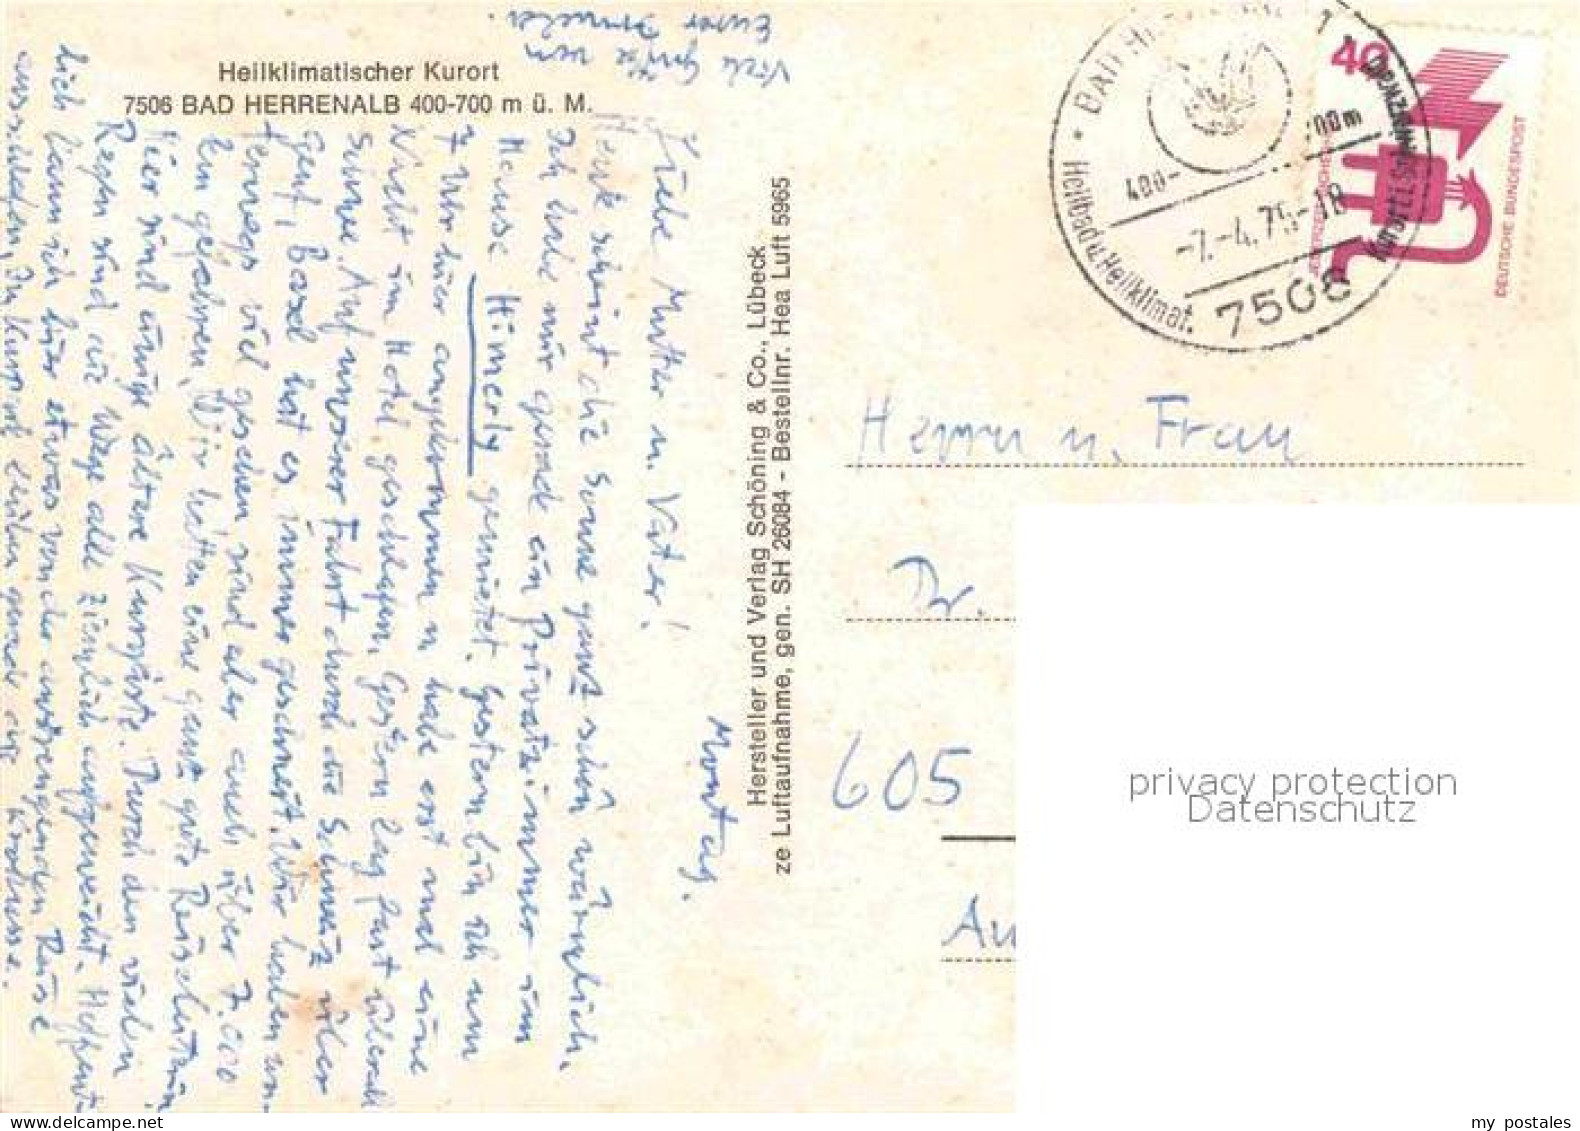 Heilklimatischer Kurort
7506 BAD HERRENALB 400-700 m ü. M.
Montag.
Liebe Mutter u. Vater!
Heute scheint die Sonne ganz schön wärmlich.
Ich habe mir gerade ein Privatzimmer im
Hause Himerly gemietet. Gestern bin ich um
7 Uhr hier angekommen u habe erst mal eine
Nacht im Hotel geschlafen. Gestern lag fast überall
Sonne. Auf unserer Fahrt durch die Schweiz über
Genf, Basel hat es immer geschneit. Wir haben un-
terwegs viel gesehen, sind aber auch über 7.000
km gefahren. Wir hatten eine ganz gute Reiseleiterin
Hier sind einige ältere Kurgäste. Durch den vielen
Regen sind die Wege alle ziemlich aufgeweicht. Hoffent-
lich kann ich hier etwas von der anstrengenden Reise
ausruhen. Im Kurpark blühen gerade die Krokusse.
Viele Grüße von
Eurer
Hersteller und Verlag Schöning & Co., Lübeck
ze Luftaufnahme, gen. SH 26084 - Bestellnr. Hea Luft 5965
BAD
400-
700m
-7.-4.75-18
7506
Heilbad u. Heilklimat.
Kurort
40
DEUTSCHE BUNDESPOST
Herrn u. Frau
Dr.
605
Au
privacy protection
Datenschutz
my postales